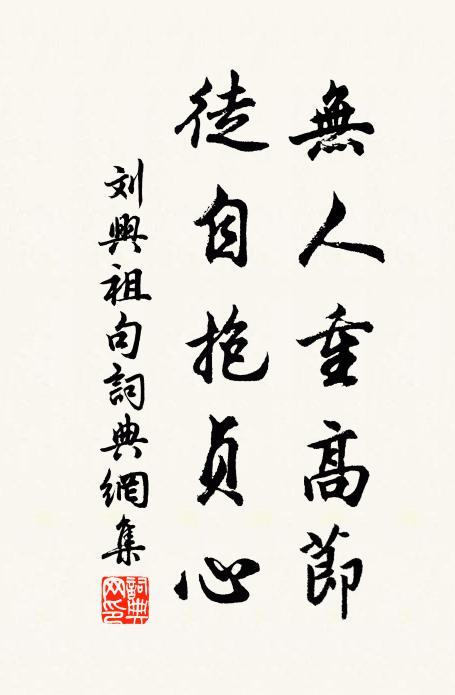 無人重高節
徒自抱貞心
刘興祖句詞典網集
詞典网印